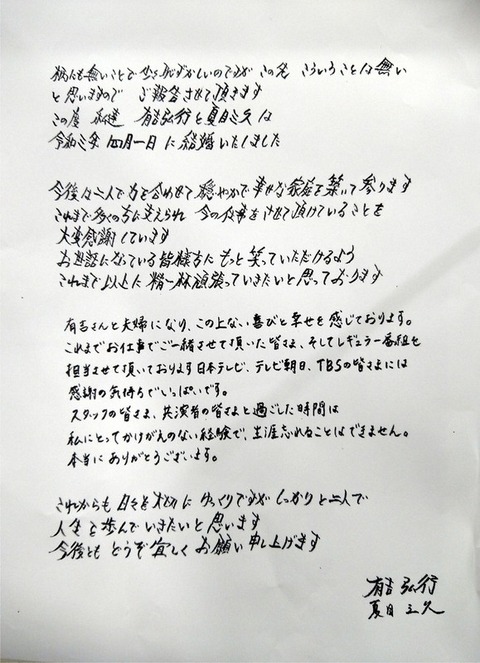 柄にも無いことで少々恥ずかしいのですが この先 こういうことは無い
と思いますので ご報告させて頂きます
この度 私達 有吉弘行と夏目三久は
令和三年 四月一日 に 結婚いたしました
今後は二人で力を合わせて 穏やかで幸せな家庭を築いて参ります
これまで多くの方に支えられ 今の仕事をさせて頂けていることを
大変感謝しています
お世話になっている皆様方に もっと笑っていただけるよう
これまで以上に 精一杯頑張っていきたいと思っております
有吉さんと夫婦になり、この上ない喜びと幸せを感じております。
これまでお仕事でご一緒させて頂いた皆さま、そしてレギュラー番組を
担当させて頂いております日本テレビ、テレビ朝日、TBSの皆さまには
感謝の気持ちでいっぱいです。
スタッフの皆さま、共演者の皆さまと過ごした時間は
私にとってかけがえのない経験で、生涯忘れることはできません。
本当にありがとうございます。
これからも 日々を大切に ゆっくりですが しっかりと二人で
人生を歩んでいきたいと思います
今後とも どうぞ宜しく お願い申し上げます
有吉 弘行
夏目 三久